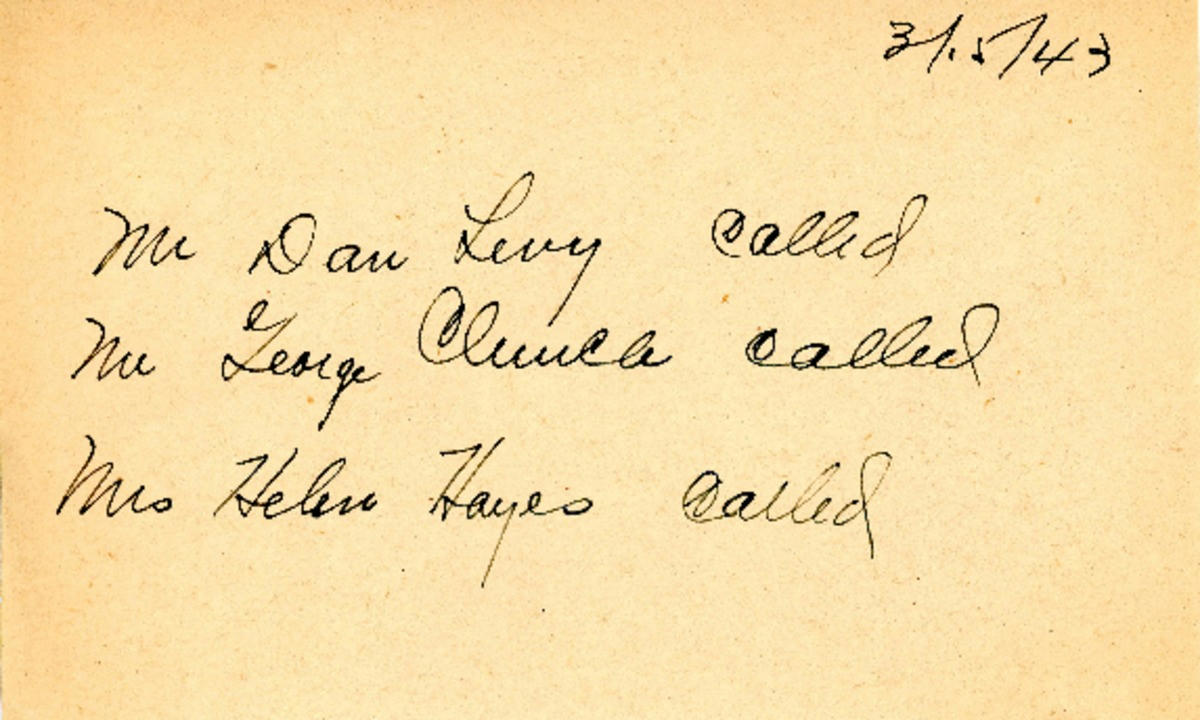 3/15/43
Mr Dan Levy called
Mr George Church called
Mrs Helen Hayes called